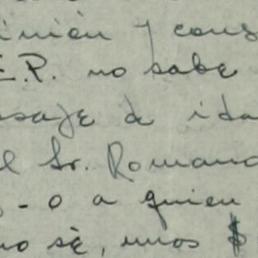 inión y cons
E.R. no sabe
saje de ida
el Sr. Romano
- o a quien
no sè, unos $